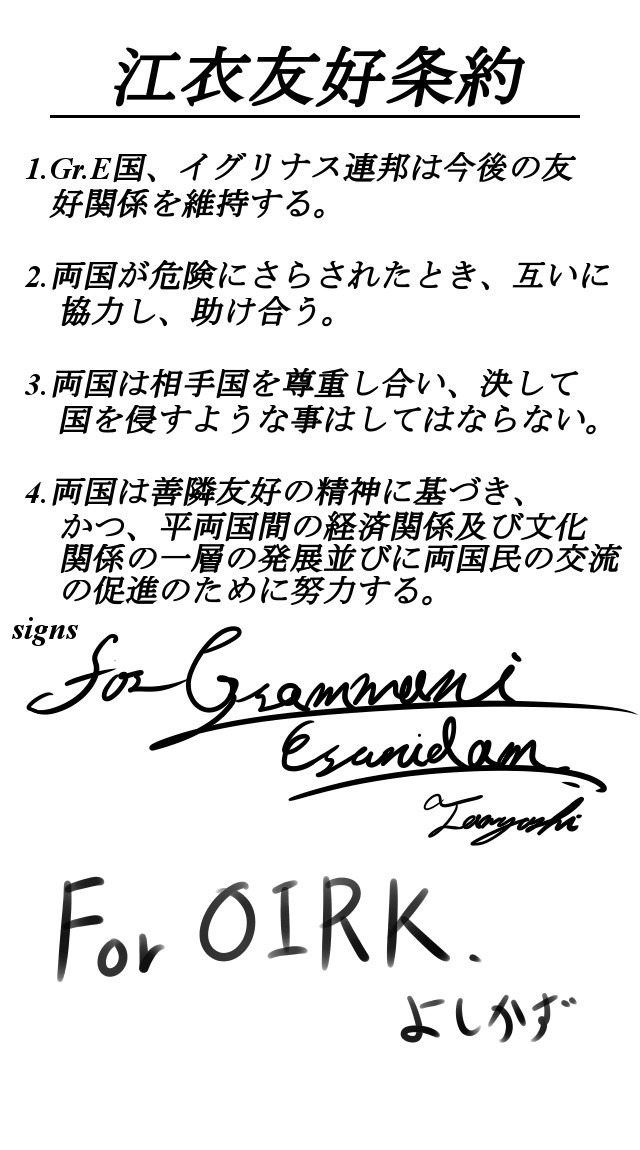 江衣友好条約
1.Gr.E国、イグリナス連邦は今後の友
好関係を維持する。
2.両国が危険にさらされたとき、互いに
協力し、助け合う。
3.両国は相手国を尊重し合い、決して
国を侵すような事はしてはならない。
4.両国は善隣友好の精神に基づき、
かつ、平両国間の経済関係及び文化
関係の一層の発展並びに両国民の交流
の促進のために努力する。
signs
for
For OIRK.
よしかず